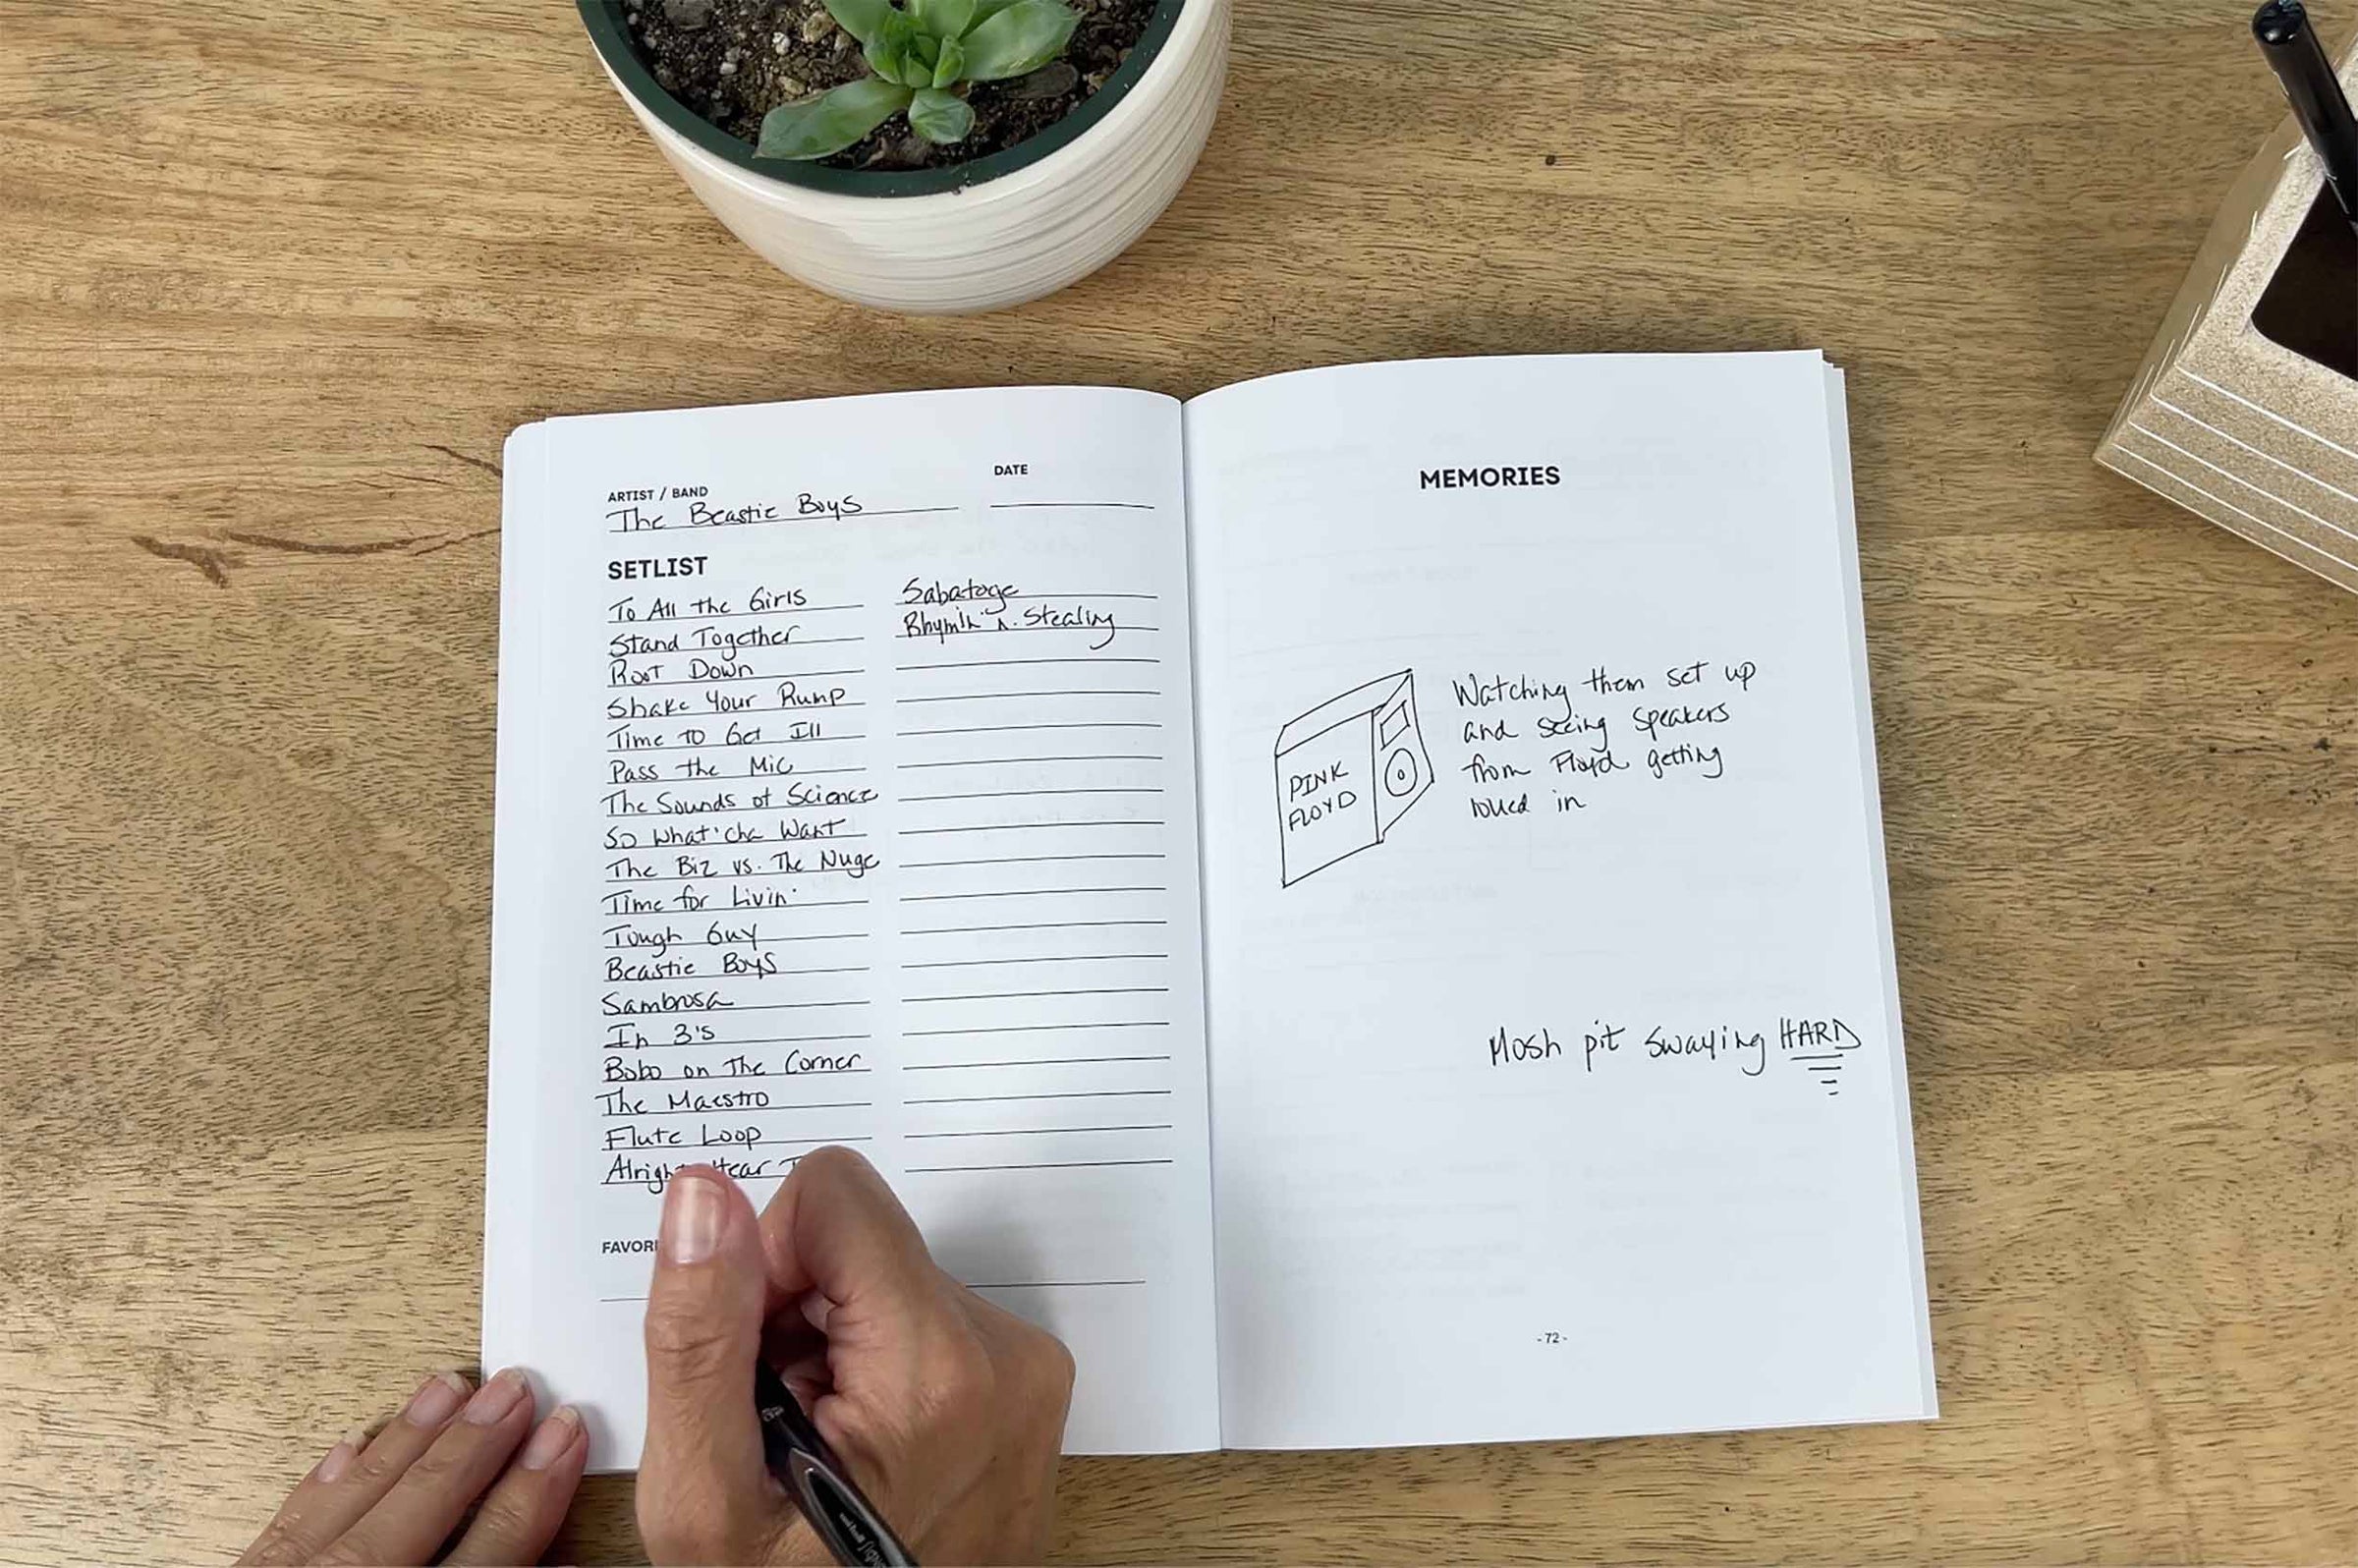 ARTIST / BAND
The Beastie Boys
DATE
SETLIST
To All the Girls
Stand Together
Root Down
Shake Your Rump
Time to Get Ill
Pass the Mic
The Sounds of Science
So What'cha Want
The Biz vs. The Nuge
Time for Livin'
Tough Guy
Beastie Boys
Sambrosa
In 3's
Bobo on The Corner
The Maestro
Flute Loop
Alright Hear
Sabatoge
Rhymin' n. Stealing
MEMORIES
PINK
FLOYD
Watching them set up
and seeing speakers
from Floyd getting
in
Mosh pit swaying HARD
- 72 -